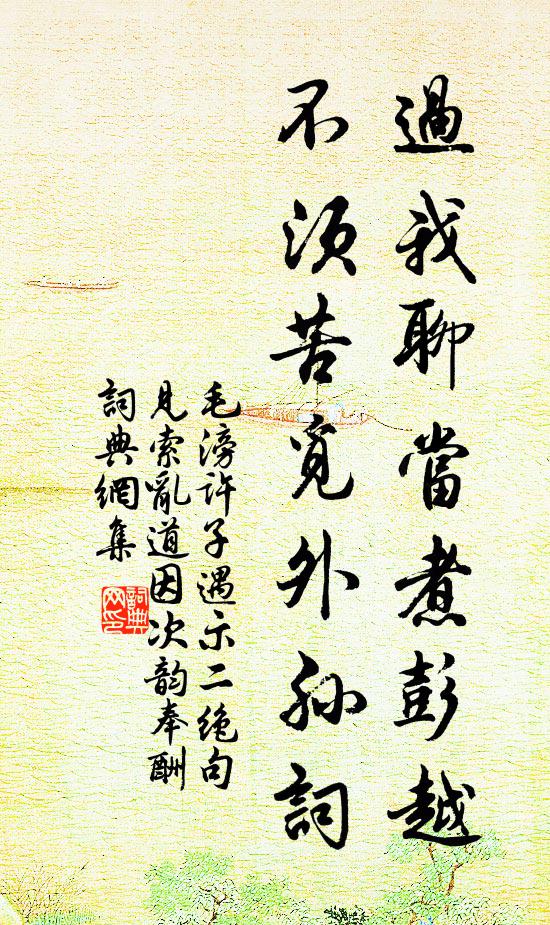 過我聊當煮彭越
不須苦覓外孫詞
毛滂許子遇示二絶句
見索亂道因次韵奉酬
詞典網集
詞典
网印